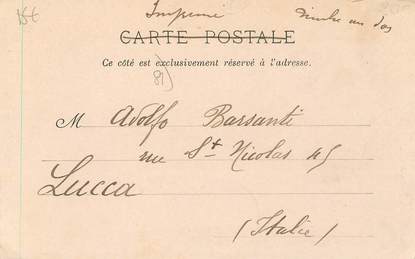 15€
Imprimé
timbre au dos
CARTE POSTALE
Ce côté est exclusivement réservé à l'adresse.
81)
M Adolfo Barsanti
rue St Nicolas 45
Lucca
(Italie)